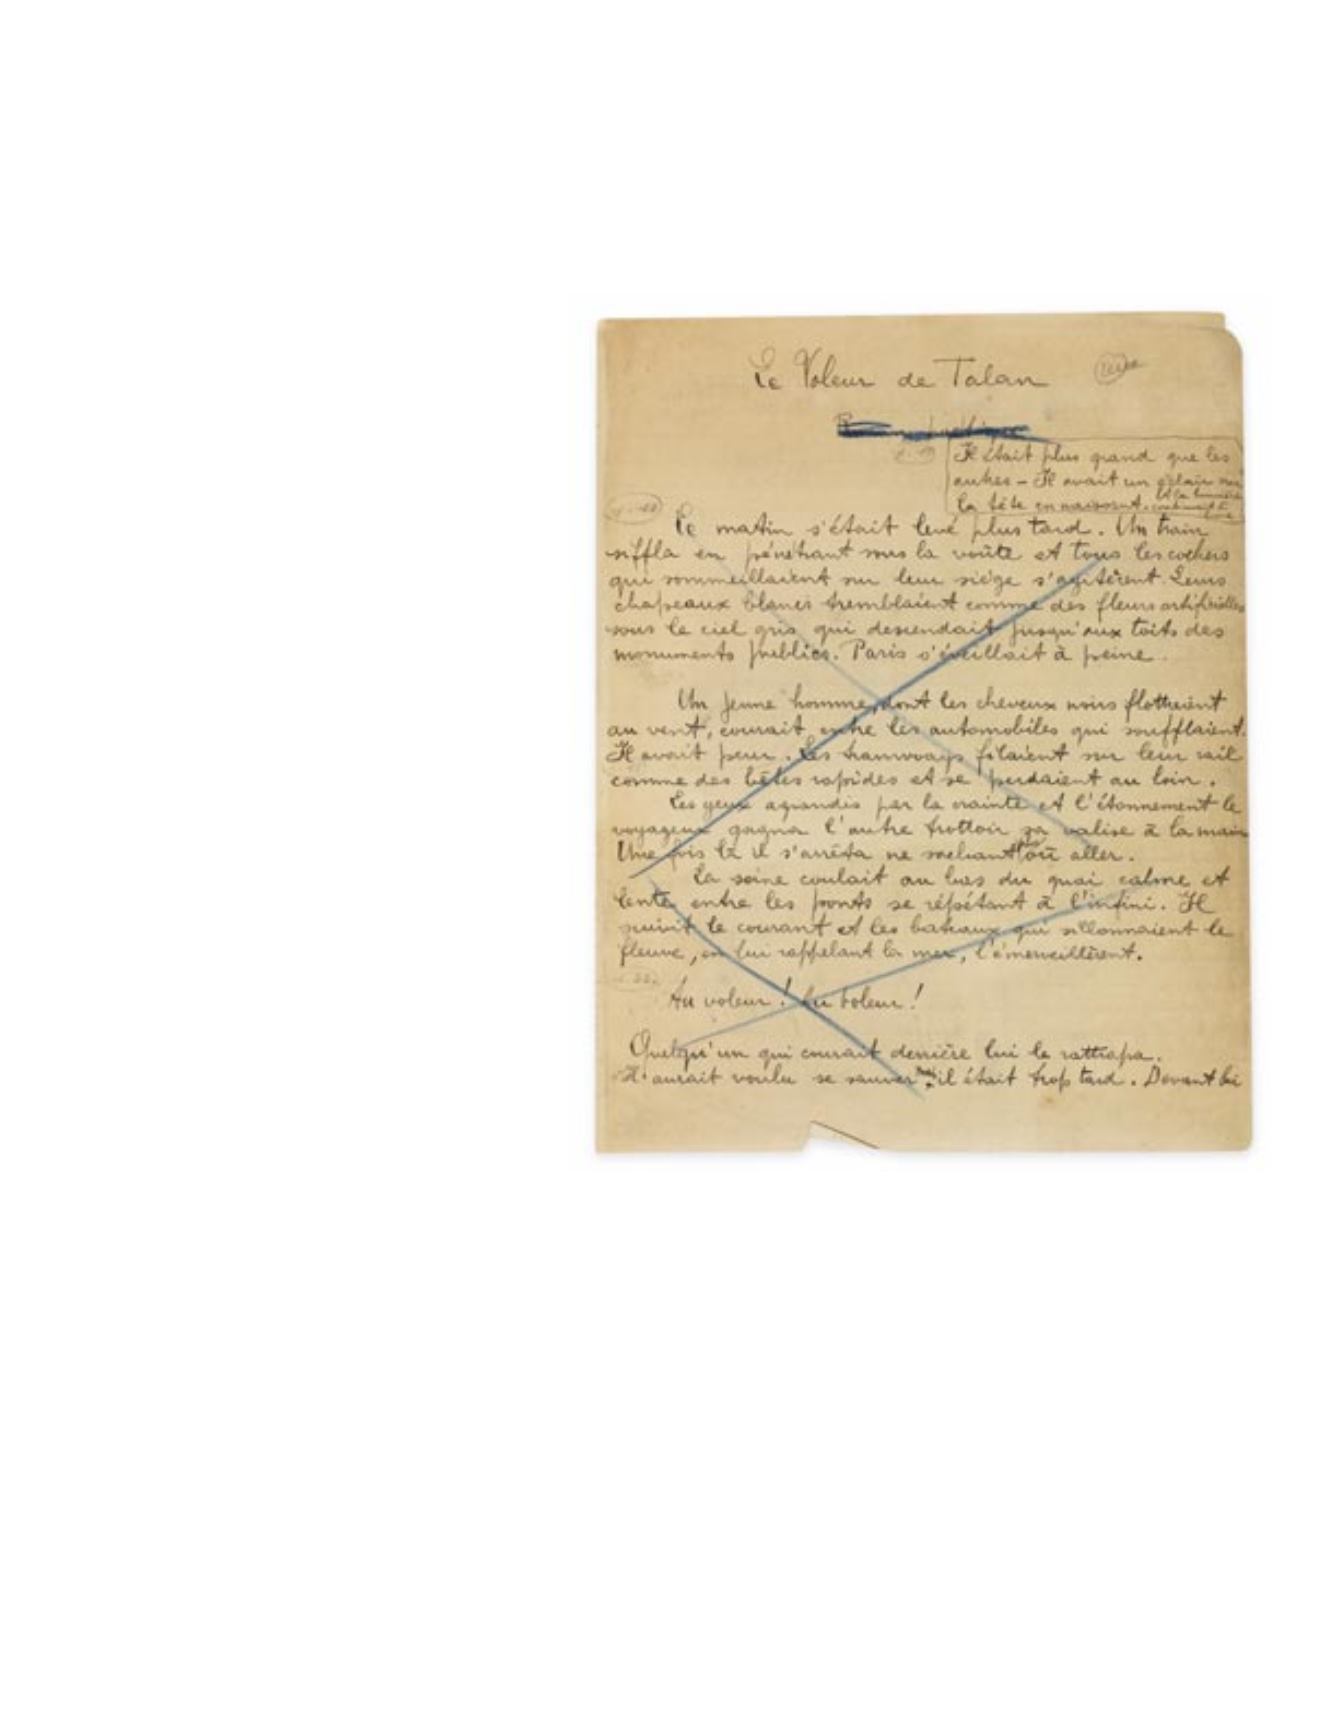 Le Voleur de Talan
Il était plus grand que les
autres – Il avait un éclair sur
la tête en naissant.
Le matin s'était levé plus tard. Un train
siffla en pénétrant sous la voûte et tous les cochers
qui sommeillaient sur leur siège s'agitèrent. Leurs
chapeaux blancs tremblaient comme des fleurs artificielles
sous le ciel gris qui descendait jusqu'aux toits des
monuments publics. Paris s'éveillait à peine.
Un jeune homme, dont les cheveux noirs flottaient
au vent, courait entre les automobiles qui soufflaient.
Il avait peur. Les tramways filaient sur leur rail
comme des bêtes rapides et se perdaient au loin.
Les yeux agrandis par la crainte et l'étonnement le
voyageur gagna l'autre trottoir sa valise à la main
Une fois là il s'arrêta ne sachant où aller.
La seine coulait au bas du quai calme et
lente entre les ponts se répétant à l'infini. Il
suivit le courant et les bateaux qui sillonnaient le
fleuve, en lui rappelant la mer, l'émerveillèrent.
Au voleur ! Au voleur !
Quelqu'un qui courait derrière lui le rattrapa.
Il aurait voulu se sauver il était trop tard. Devant lui